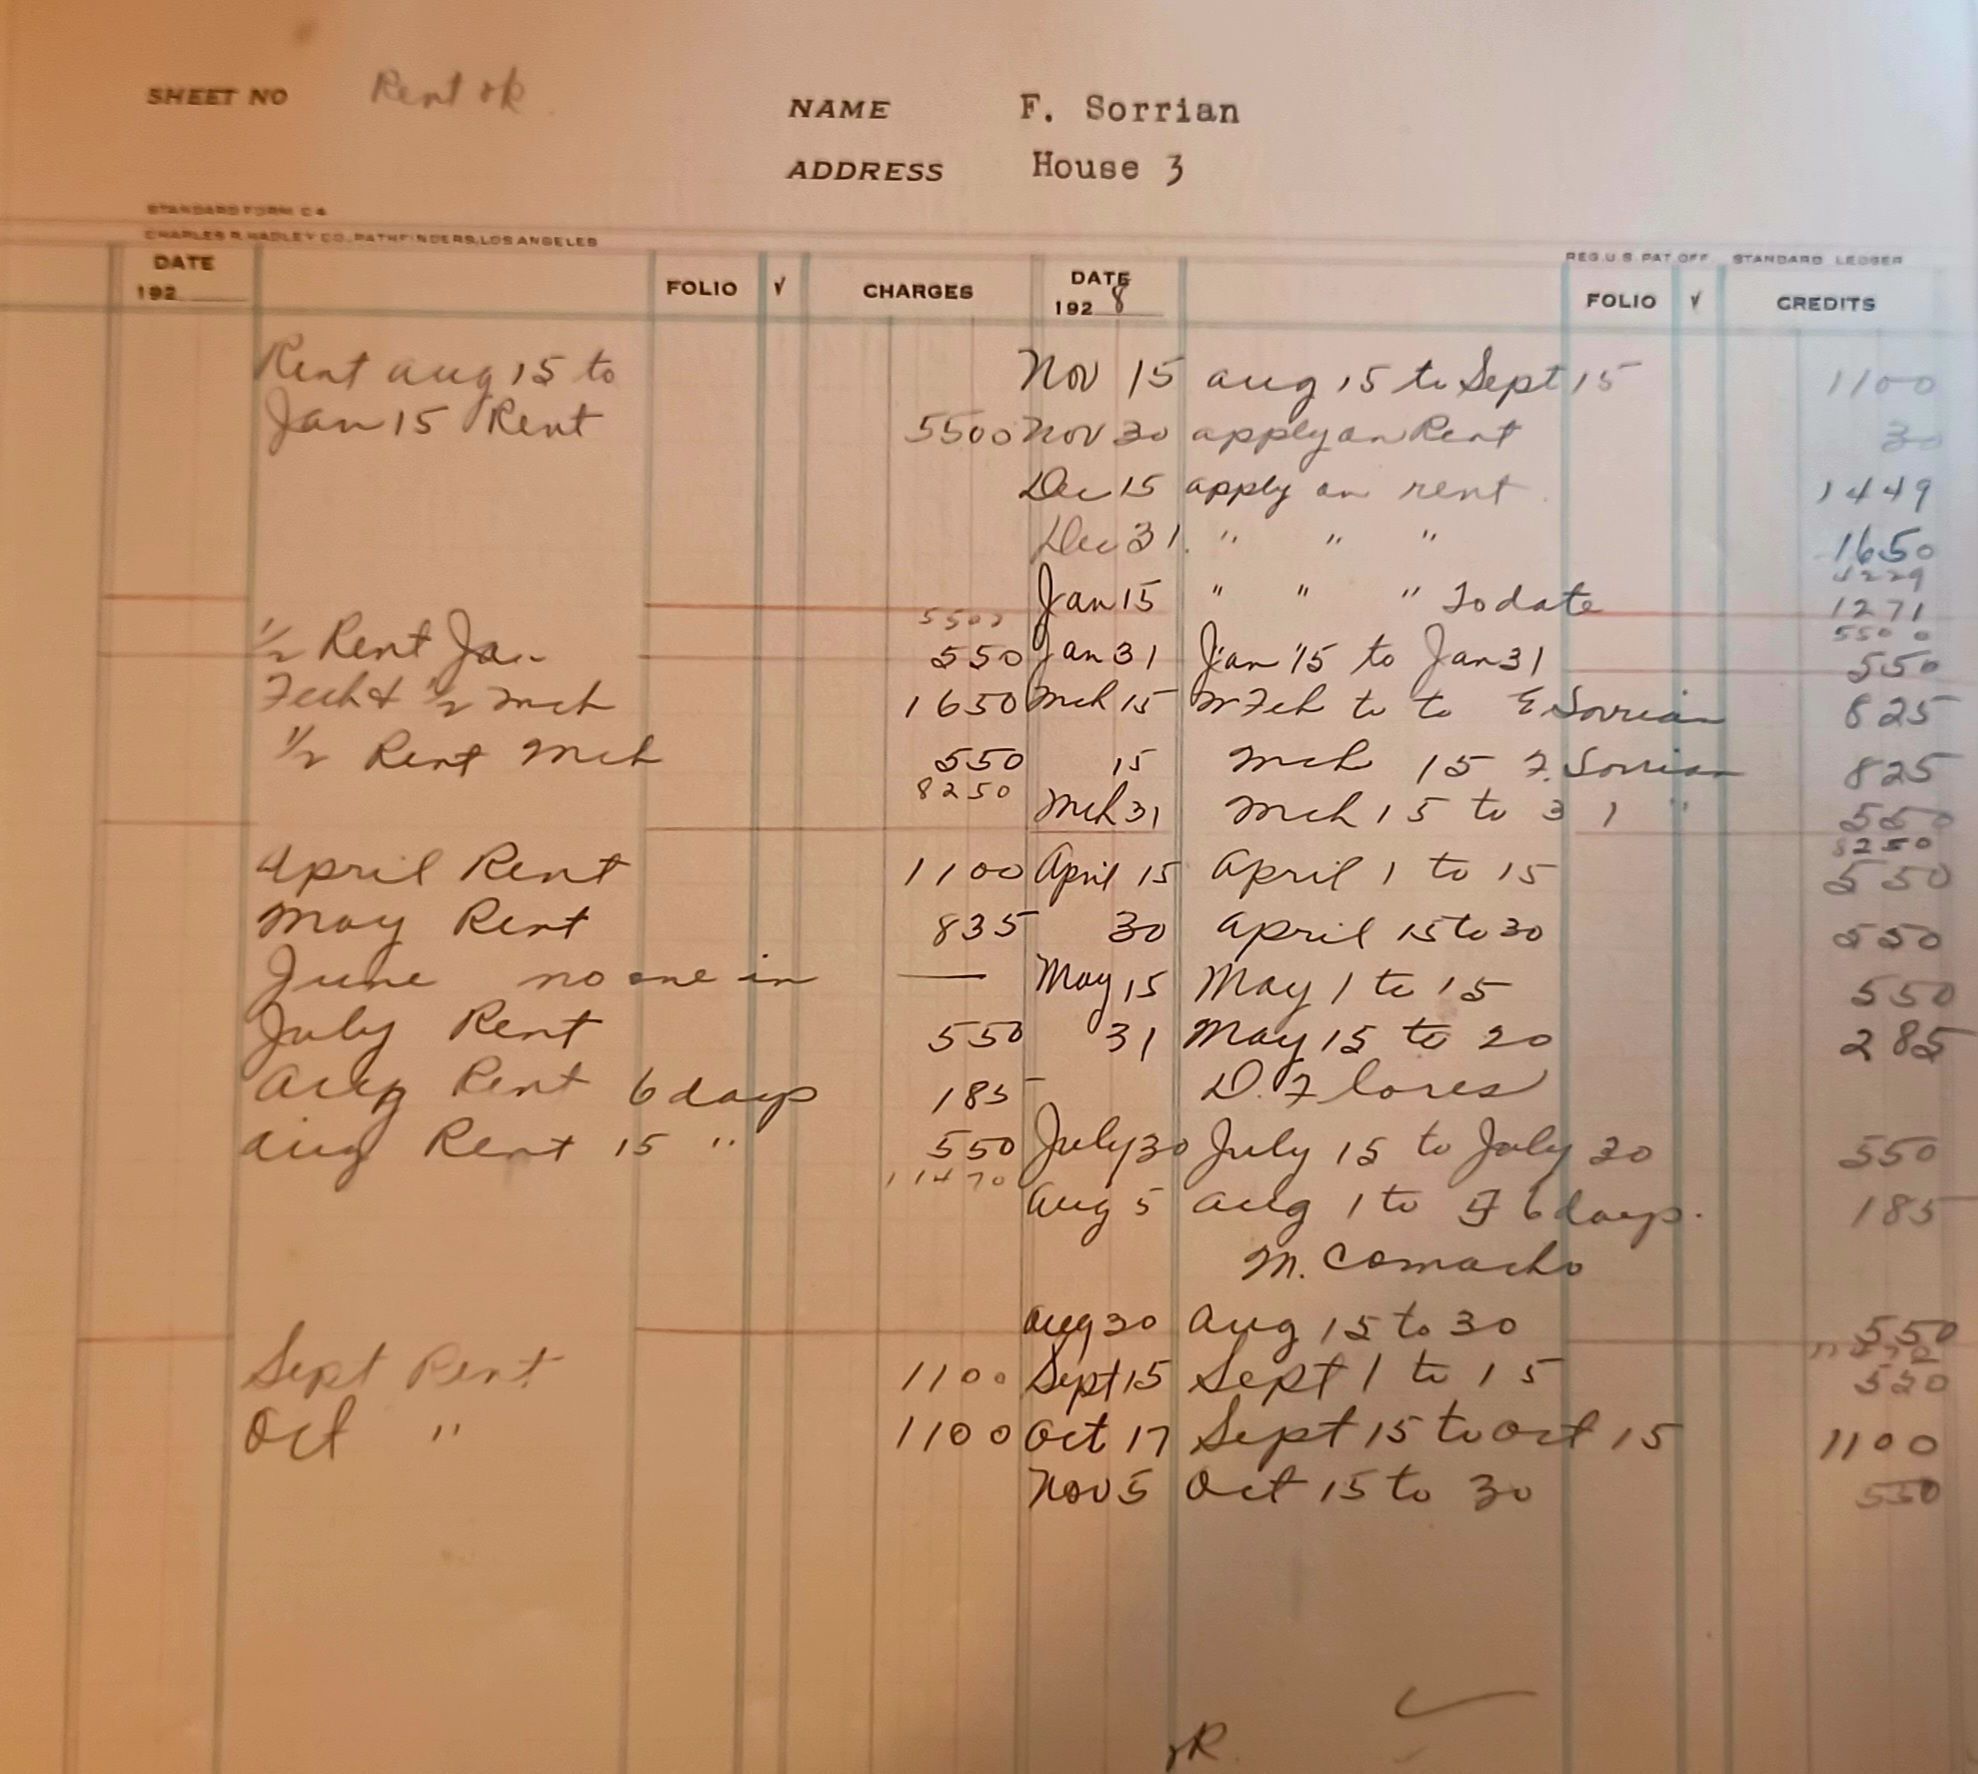 SHEET NO Rent ok
NAME F. Sorrian
ADDRESS House 3
STANDARD FORM C4
CHARLES R. HADLEY CO., PATHFINDERS, LOS ANGELES
REG. U.S. PAT. OFF. STANDARD LEDGER
DATE 192 FOLIO √ CHARGES DATE 1928 FOLIO √ CREDITS
Rent aug 15 to Nov 15 aug 15 to Sept 15 1100
Jan 15 Rent 5500 Nov 30 apply on Rent 30
Dec 15 apply on rent 1449
Dec 31. " " " 1650
4229
Jan 15 " " " To date 1271
5500 5500
1/2 Rent Jan 550 Jan 31 Jan 15 to Jan 31 550
Feb & 1/2 Mch 1650 Mch 15 Feb to to E Sorrian 825
1/2 Rent Mch 550 15 Mch 15 F. Sorrian 825
8250 Mch 31 Mch 15 to 31 " 550
8250
April Rent 1100 April 15 April 1 to 15 550
May Rent 835 30 April 15 to 30 550
June no one in — May 15 May 1 to 15 550
July Rent 550 31 May 15 to 20 285
Aug Rent 6 days 185 D. Flores
Aug Rent 15 " 550 July 30 July 15 to July 30 550
11470
Aug 5 aug 1 to 6 days. 185
M. Comacho
Aug 30 Aug 15 to 30 550
Sept Rent 1100 Sept 15 Sept 1 to 15 550
Oct " 1100 Oct 17 Sept 15 to Oct 15 1100
Nov 5 Oct 15 to 30 550
OK.